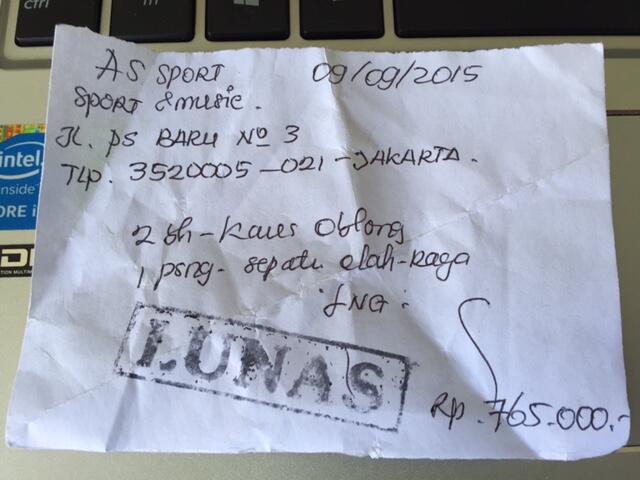 ctrl
AS SPORT 09/09/2015
SPORT & music.
JL. PS BARU No 3
TLp. 3520005-021-JAKARTA.
2 bh-Kaus Oblong
1 psng- sepatu olah-raga
LUNAS
Rp. 765.000.-
intel
inside
CORE i